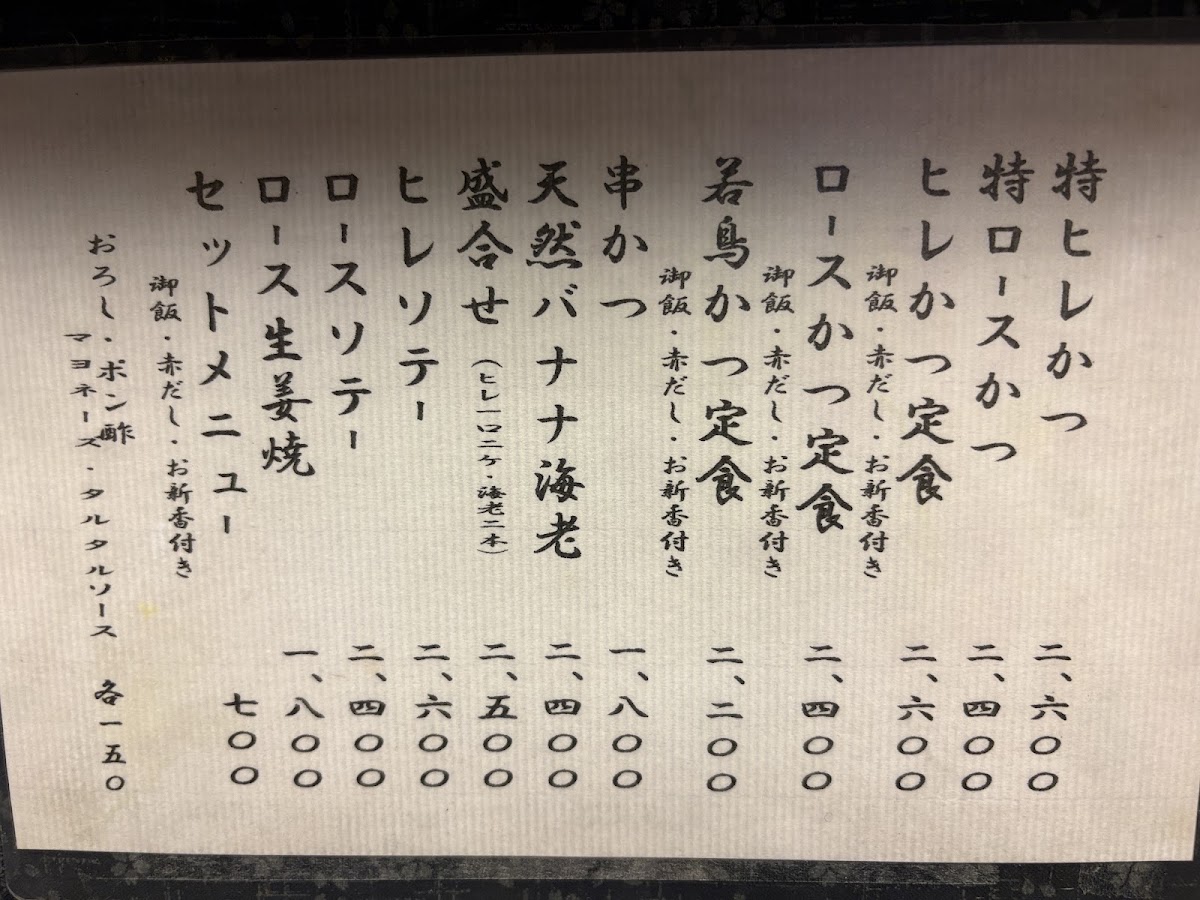 特ヒレかつ 二、六〇〇
特ロースかつ 二、四〇〇
ヒレかつ定食 二、六〇〇
御飯・赤だし・お新香付き
ロースかつ定食 二、四〇〇
御飯・赤だし・お新香付き
若鳥かつ定食 二、二〇〇
御飯・赤だし・お新香付き
串かつ 一、八〇〇
天然バナナ海老 二、四〇〇
盛合せ(ヒレ一口二ケ・海老二本) 二、五〇〇
ヒレソテー 二、六〇〇
ロースソテー 二、四〇〇
ロース生姜焼 一、八〇〇
セットメニュー 七〇〇
御飯・赤だし・お新香付き
おろし・ポン酢
マヨネーズ・タルタルソース 各一五〇